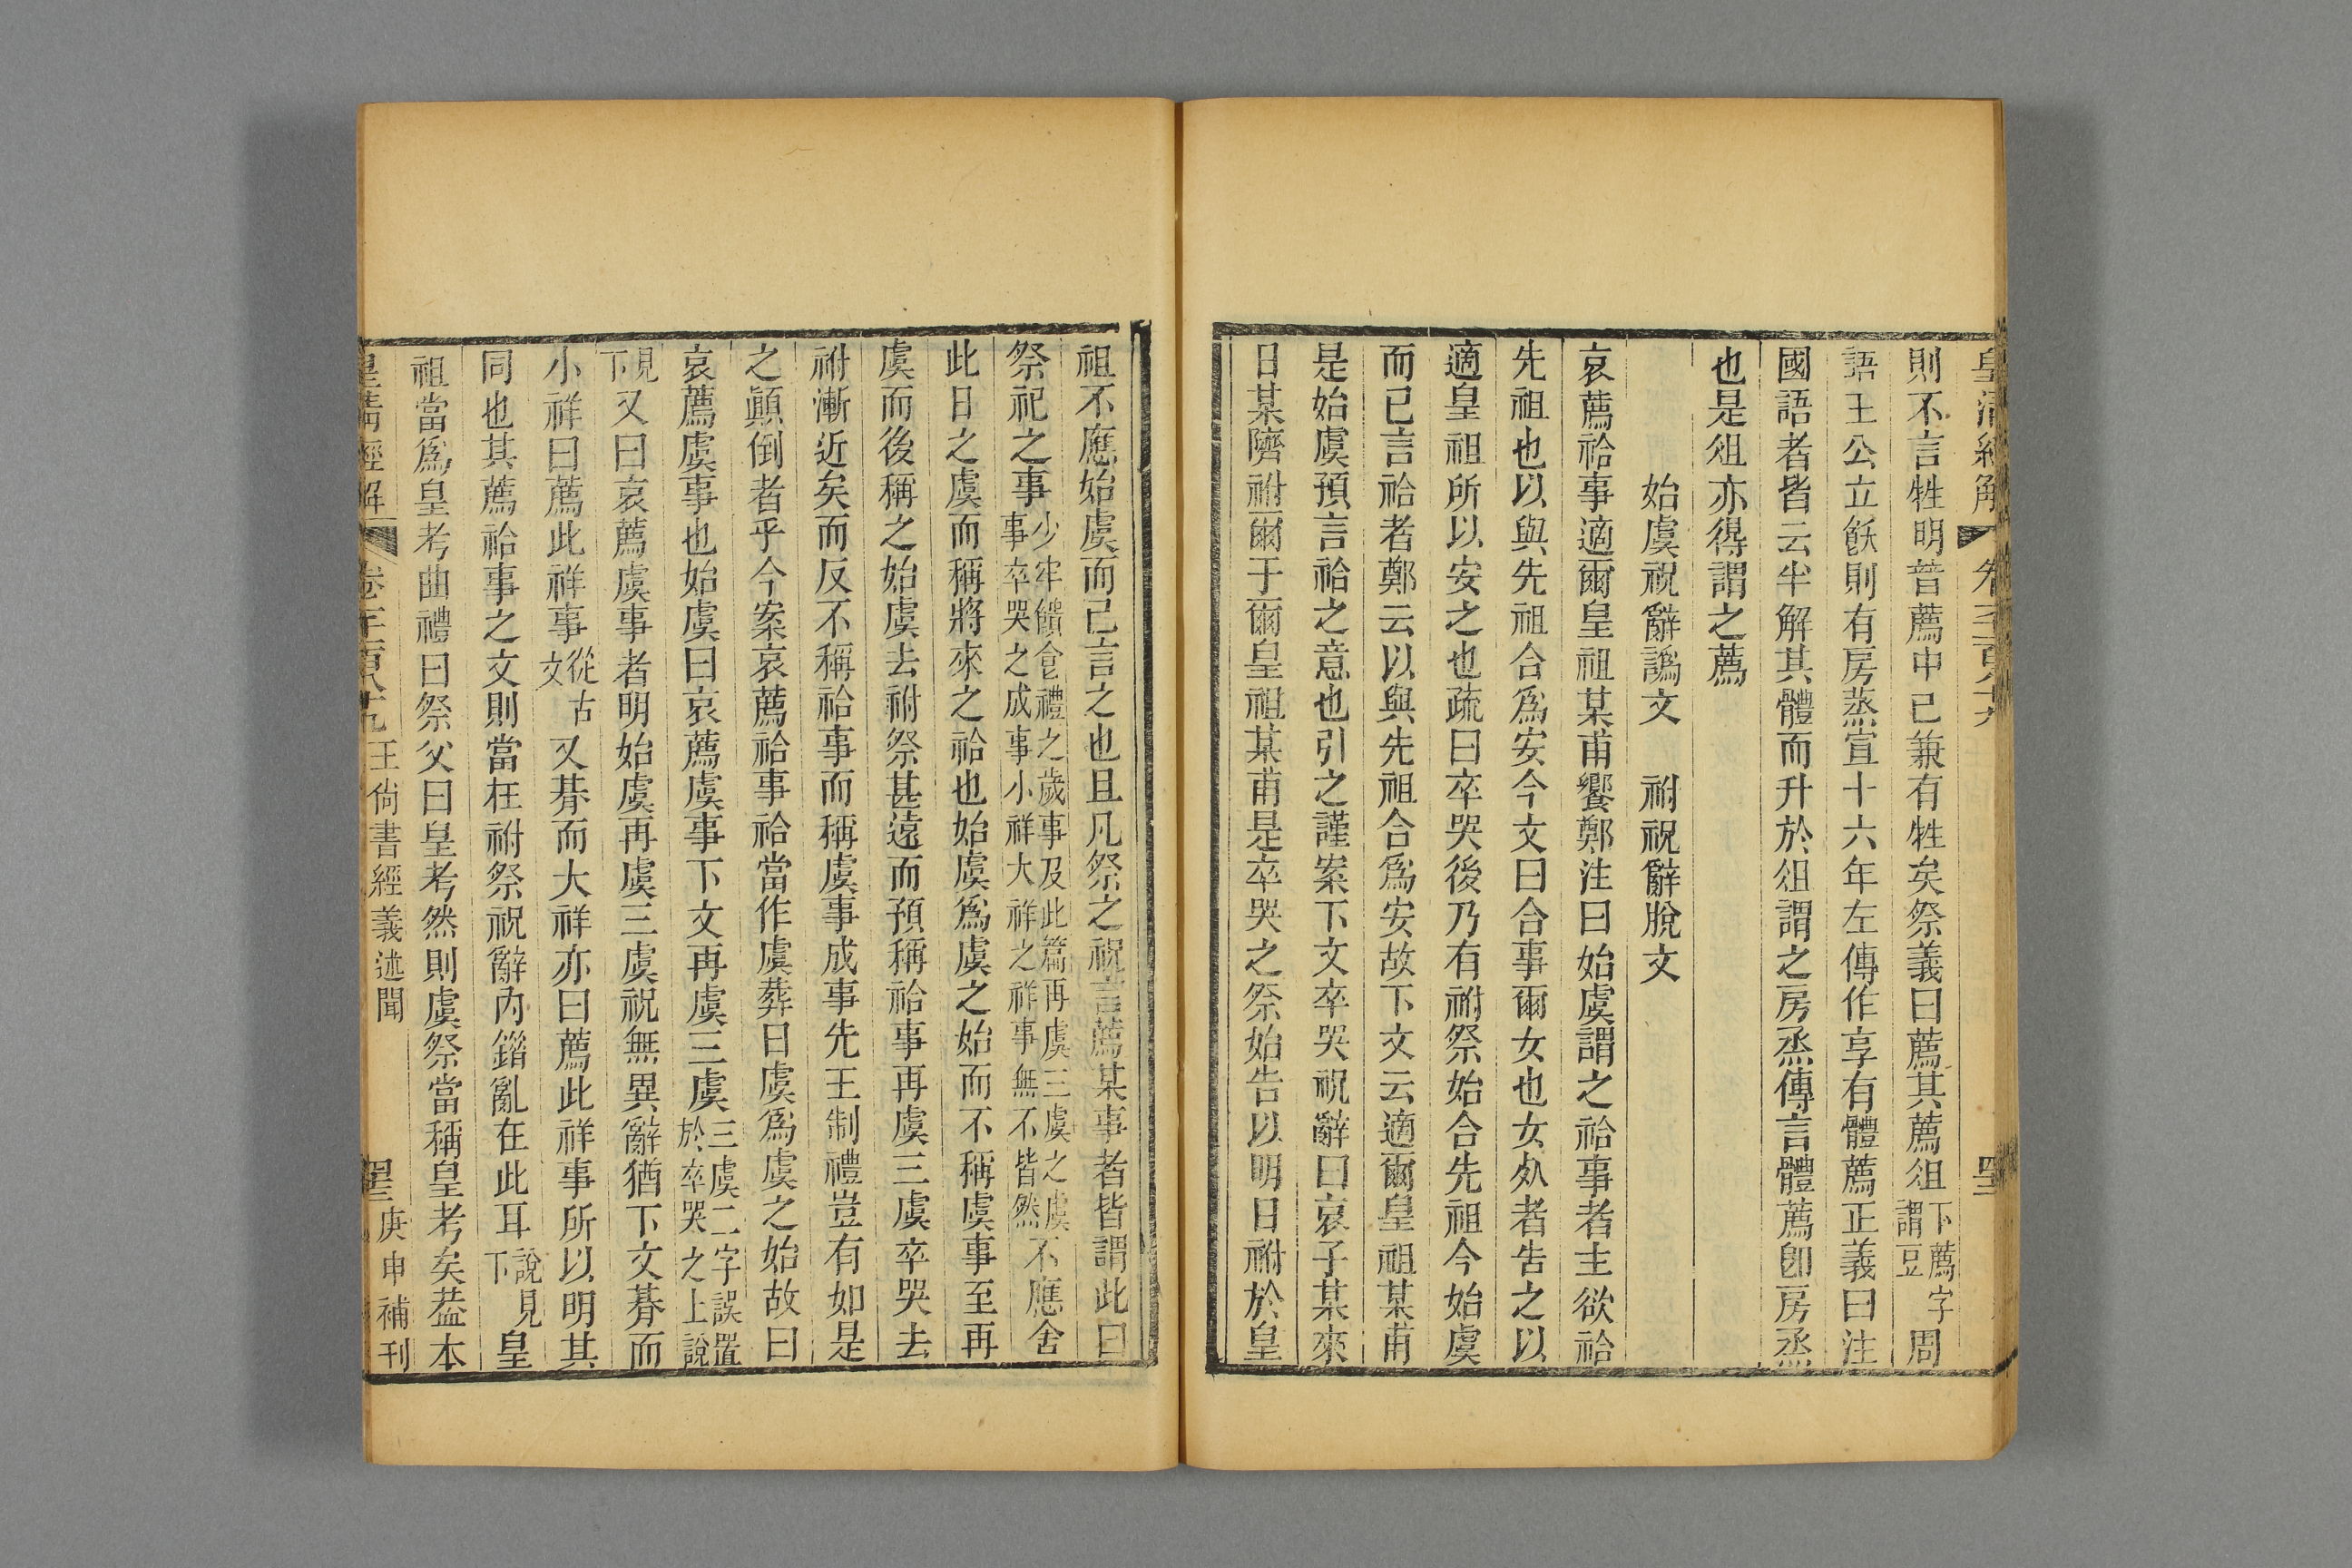 皇清經解 卷
則不言牲明普薦中已兼有牲矣祭義曰薦其薦俎下薦字謂豆周
語王公立飫則有房蒸宣十六年左傳作享有體薦正義曰注
國語者皆云半解其體而升於俎謂之房烝傳言體薦卽房烝
也是俎亦得謂之薦
始虞祝辭譌文 祔祝辭脫文
哀薦祫事適爾皇祖某甫饗鄭注曰始虞謂之祫事者主欲祫
先祖也以與先祖合爲安今文曰合事爾女也女𣦸者告之以
適皇祖所以安之也疏曰卒哭後乃有祔祭始合先祖今始虞
而已言祫者鄭云以與先祖合爲安故下文云適爾皇祖某甫
是始虞預言祫之意也引之謹案下文卒哭祝辭曰哀子某來
日某隮祔爾于爾皇祖某甫是卒哭之祭始告以明日祔於皇
祖不應始虞而已言之也且凡祭之祝言薦某事者皆謂此曰
祭祀之事少牢饋食禮之歲事及此篇再虞三虞之虞事卒哭之成事小祥大祥之祥事無不皆然不應舍
此日之虞而稱將來之祫也始虞爲虞之始而不稱虞事至再
虞而後稱之始虞去祔祭甚遠而預稱祫事再虞三虞卒哭去
祔漸近矣而反不稱祫事而稱虞事成事先王制禮豈有如是
之顚倒者乎今案哀薦祫事祫當作虞葬日虞爲虞之始故曰
哀薦虞事也始虞曰哀薦虞事下文再虞三虞三虞二字誤置於卒哭之上說
見下又曰哀薦虞事者明始虞再虞三虞祝無異辭猶下文朞而
小祥曰薦此祥事從古文又朞而大祥亦曰薦此祥事所以明其
同也其薦祫事之文則當在祔祭祝辭內錯亂在此耳說見下皇
祖當爲皇考曲禮曰祭父曰皇考然則虞祭當稱皇考矣葢本
皇清經解 卷千二百八十九 王尚書經義述聞 庚申補刊